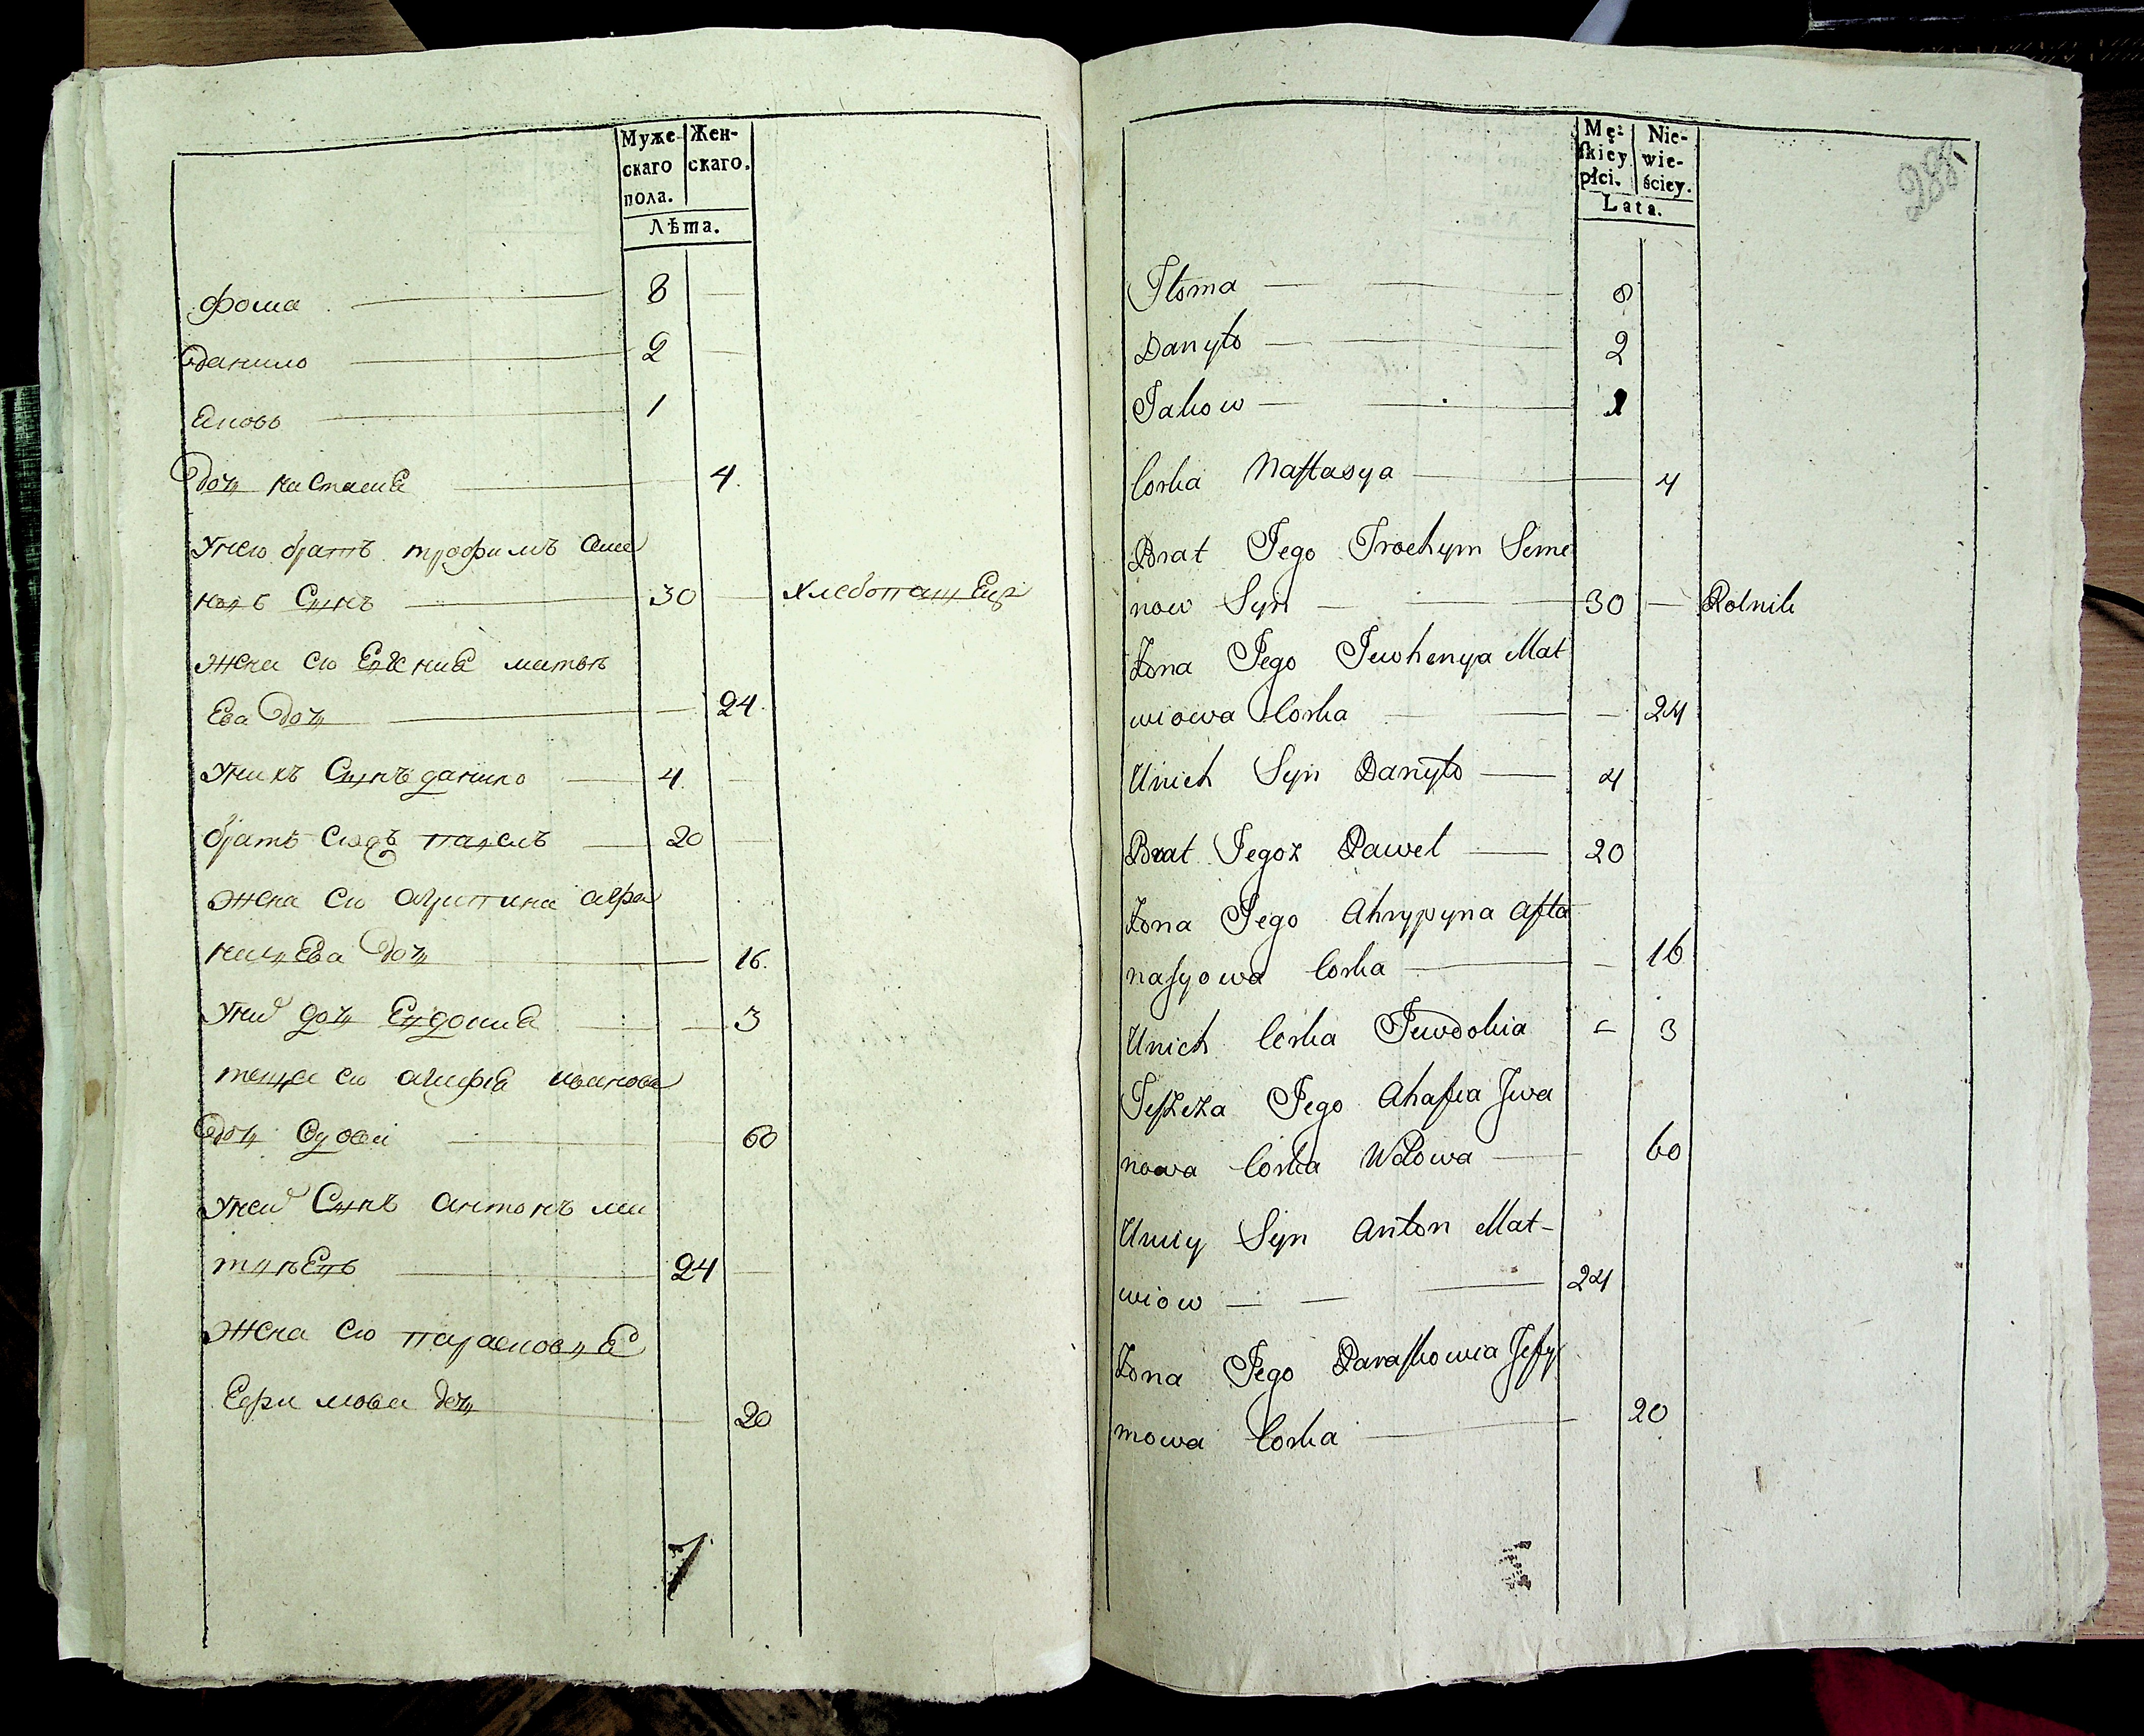 Муже-
скаго
пола.
Жен-
скаго.
Лѣта.
фома 8
данило 2
Яковъ 1
дочъ настасия 4
Унего братъ трофимъ Семе
новъ Сынъ 30 хлебопашецъ
жена его Евгения матвѣ
ева дочъ 24
Унихъ Сынъ данило 4
братъ Егожъ павелъ 20
жена его агрипина афа
насиева дочъ 16.
Унихъ дочъ Евдокия 3
теща его агафия иванова
дочъ вдова 60
Уней Сынъ антонъ ма
твѣевъ 24
жена его парасковия
Ефимова дочъ 20
Mę:
skiey
płci.
Nie-
wie-
ściey.
Lata.
288
Jtoma 8
Danyło 2
Jakow 1
Corka Nastasya 4
Brat Jego Trochym Seme
now Syn 30 Rolnik
Żona Jego Jewhenya Mat
wiowa Corka 24
Unich Syn Danyło 4
Brat Jegoż Paweł 20
Żona Jego Ahrypyna Afta
nasyowa Corka 16
Unich Corka Jewdokia 3
Teszcza Jego Ahafia Jwa
nowa Corka Wdowa 60
Uniey Syn Anton Mat-
wiow 24
Żona Jego Paraskowia Jefy
mowa Corka 20